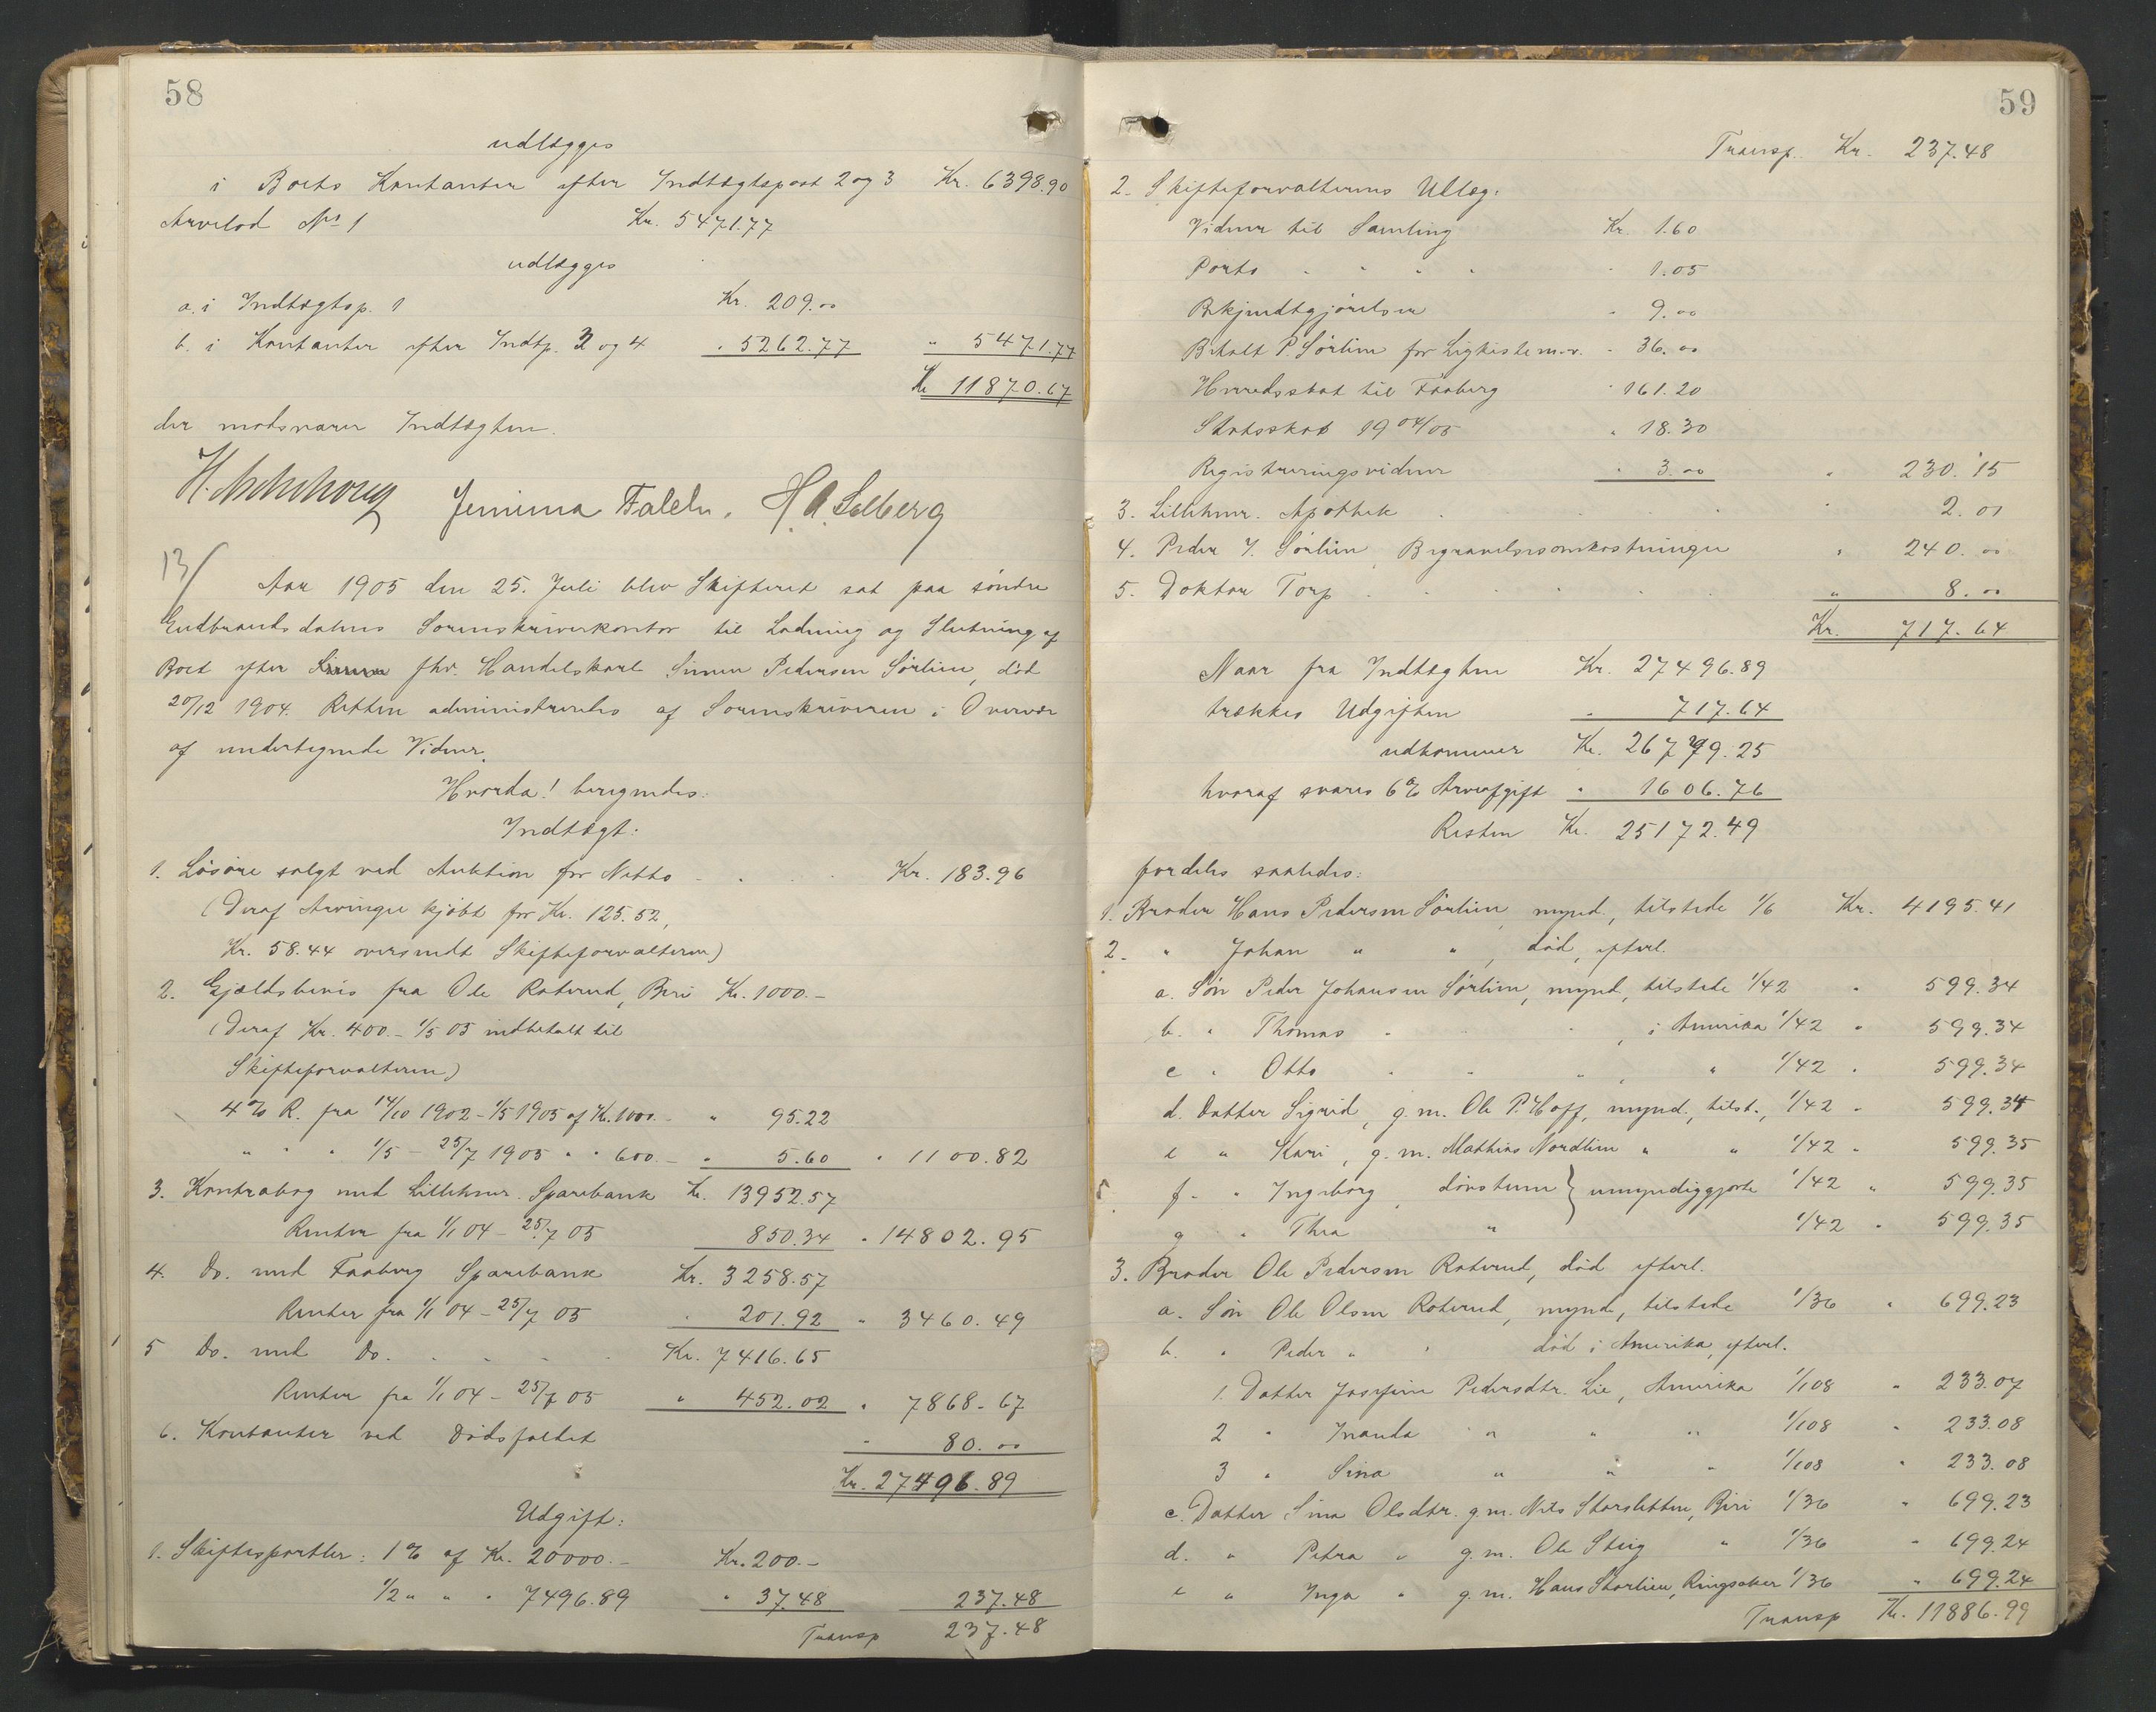 58
udlægges
i Boets Kontanter efter Indtægtspost 2 og 3 Kr. 6398.90
Arvelod No 1 Kr. 5471.77
udlægges
a. i Indtægtsp. 1 Kr. 209.00
b. i Kontanter efter Indtp. 3 og 4 " 5262.77 " 5471.77
Kr 11870.67
der modsvarer Indtægten.
Jenima H. A. Solberg
13/
Aar 1905 den 25. Juli blev Skifteret sat paa søndre
Gudbrandsdalens Sorenskriverkontor til Lodning og Slutning af
Boet efter fhv. Handelskarl Simen Pedersen Sørlien, død
20/12 1904. Retten administreredes af Sorenskriveren i Overvær
af undertegnede Vidner.
Hvorda! beregnedes:
Indtægt:
1. Løsøre solgt ved Auktion for Netto - - - Kr. 183.96
(Deraf Arvinger kjøbt for Kr. 125.52,
Kr. 58.44 oversendt Skifteforvalteren)
2. Gjældsbevis fra Ole Roterud, Biri Kr. 1000.-
(Deraf Kr. 400.- 1/5 05 indbetalt til
Skifteforvalteren)
4% R. fra 14/10 1902 - 1/5 1905 af Kr. 1000.- " 95.22
" " " 1/5 - 25/7 1905 " " 600.- " 5.60 " 1100.82
3. Kontrabog med Lillehmr. Sparebank Kr. 13952.57
Renter fra 1/1 04 - 25/7 05 850.34 " 14802.95
4. Do. med Faaberg Sparebank Kr. 3258.57
Renter fra 1/1 04 - 25/7 05 " 201.92 " 3460.49
5 Do. med Do. - - - - Kr. 7416.65
Renter fra 1/1 04 - 25/7 05 " 452.02 " 7868.67
6. Kontanter ved Dødsfaldet " 80.00
Kr. 27496.89
Udgift:
1. Skiftesportler: 1% af Kr. 20000.- Kr. 200.-
1/2 " " " 7496.89 " 37.48 237.48
Transp 237.48
59
Transp. Kr. 237.48
2. Skifteforvalterens Udlæg:
Vidner til Samling Kr. 1.60
Porto - - - - - 1.05
Bekjendtgjørelser " 9.00
Betalt P. Sørlien for Ligkiste m.v. " 36.00
Herredsskat til Faaberg " 161.20
Statsskat 1904/05 " 18.30
Registreringsvidner " 3.00 " 230.15
3. Lillehmr. Apothek - - - - 2.01
4. Peder J. Sørlien, Begravelsesomkostninger " 240.00
5. Doktor Torp - - - - - " 8.00
Kr. 717.64
Naar fra Indtægten Kr. 27496.89
trækkes Udgiften " 717.64
udkommer Kr. 26779.25
hvoraf svares 6% Arveafgift " 1606.76
Resten Kr. 25172.49
fordeles saaledes:
1. Broder Hans Pedersen Sørlien, mynd., tilstede 1/6 Kr. 4195.41
2. " Johan " " , død, efterl.
a. Søn Peder Johansen Sørlien, mynd, tilstede 1/42 " 599.34
b. " Thomas " " , i Amerika 1/42 " 599.34
c " Otto " " " , " 1/42 " 599.34
d. Datter Sigrid, g. m. Ole P. Hoff, mynd., tilst., 1/42 " 599.34
e " Kari, g. m. Mathias Nordlien " " 1/42 " 599.35
f. " Ingeborg, døvstum } umyndiggjorte 1/42 " 599.35
g " Thea " 1/42 " 599.35
3. Broder Ole Pedersen Roterud, død efterl.
a. Søn Ole Olsen Roterud, mynd, tilstede 1/36 " 699.23
b. " Peder " " død i Amerika, efterl.
1. Datter Josefine Pedersdtr. Lie, Amerika 1/108 " 233.07
2 " " " " 1/108 " 233.08
3 " Sina " " " 1/108 " 233.08
c. Datter Sina Olsdtr. g. m. Nils Storsletten, Biri 1/36 " 699.23
d. " Petra " g. m. Ole Steig " 1/36 " 699.24
e " Inga " g. m. Hans Storlien, Ringsaker 1/36 " 699.24
Transp Kr. 11886.99